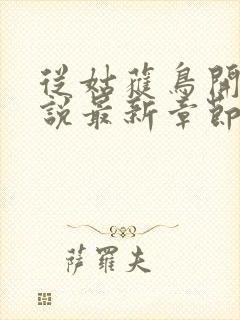 從姑獲鳥開
說最新章節
萨羅夫